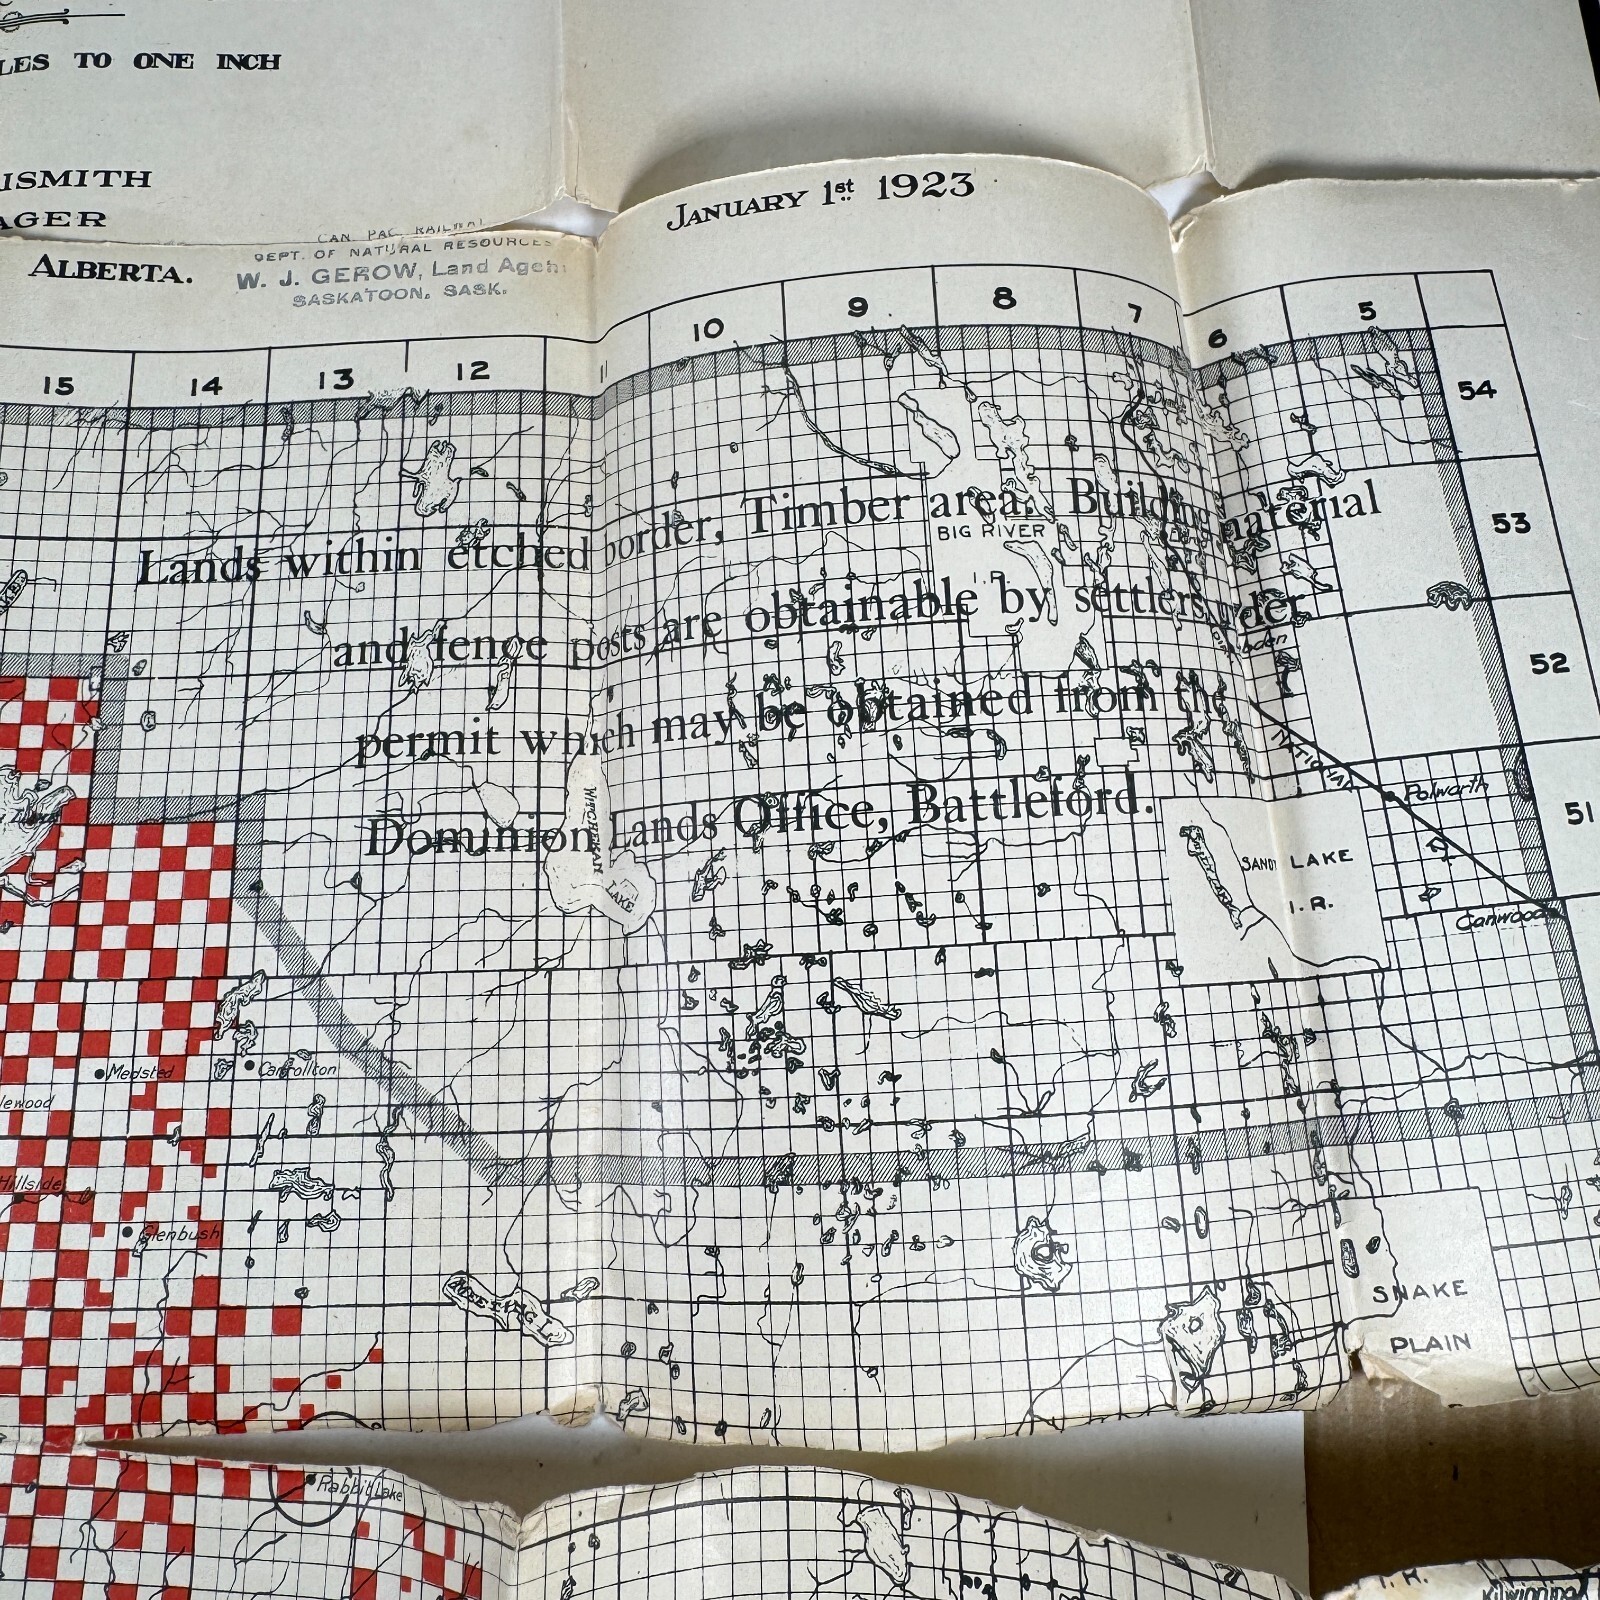 TO ONE INCH
JANUARY 1st 1923
CAN. PAC. RAILWAY
DEPT. OF NATURAL RESOURCES
ALBERTA.
W. J. GEROW, Land Agent
SASKATOON, SASK.
15 14 13 12 11 10 9 8 7 6 5
54
53
52
51
Lands within etched border, Timber area. Building material
BIG RIVER
I.R.
and fence posts are obtainable by settlers under
permit which may be obtained from the
NATIONAL
Polworth
Dominion Lands Office, Battleford.
WITCHEKAN
LAKE
SANDY LAKE
SANDY LAKE
I.R.
Canwood
Medsted
Carrollton
Hillside
Glenbush
MEETING L.
SNAKE
PLAIN
Rabbit Lake
I.R.
Kilwinning